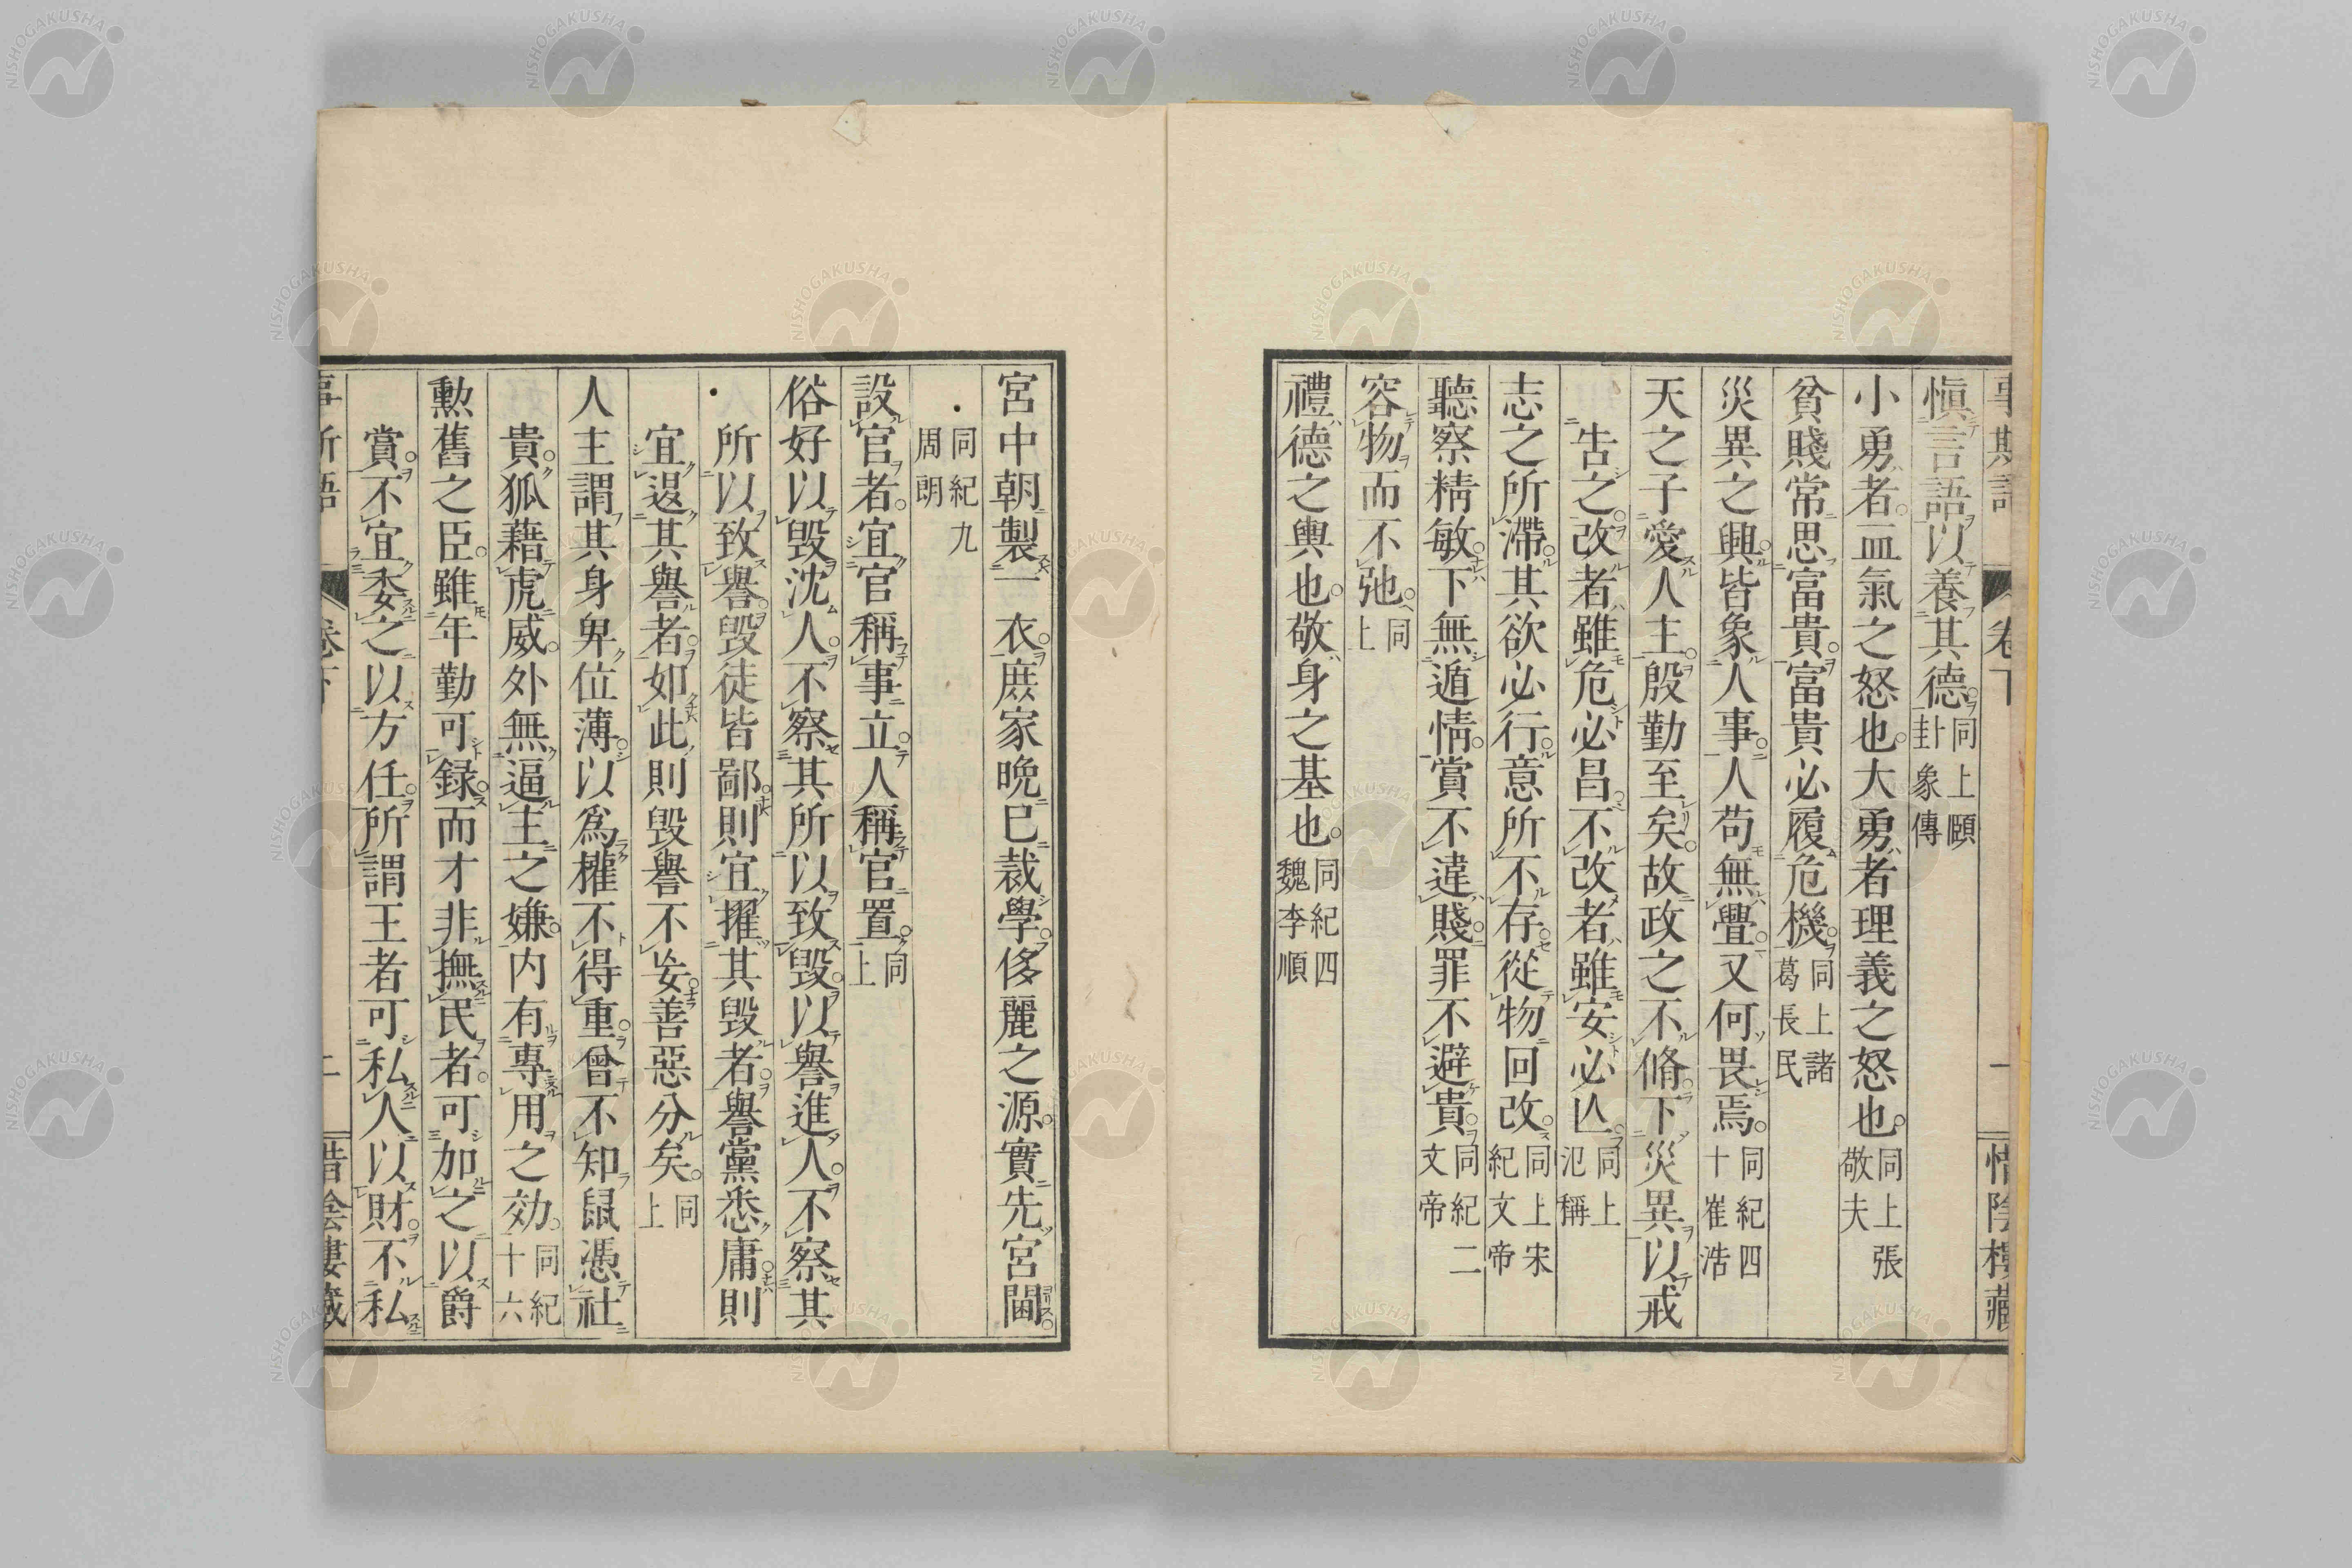 事斯語 卷下 一 惜陰樓藏
愼言語以養其德同上頤卦象傳
小勇者血氣之怒也大勇者理義之怒也同上張敬夫
貧賤常思富貴富貴必履危機同上諸葛長民
災異之興皆象人事人苟無釁又何畏焉同紀四十崔浩
天之子愛人主殷勤至矣故政之不脩下災異以戒
告之改者雖危必昌不改者雖安必亾同上氾稱
志之所滯其欲必行意所不存從物回改同上宋紀文帝
聽察精敏下無遁情賞不違賤罪不避貴同紀二文帝
容物而不弛同上
禮德之輿也敬身之基也同紀四魏李順
宮中朝製一衣庶家晩已裁學侈麗之源實先宮閫
同紀九周朗
設官者宜官稱事立人稱官置同上
俗好以毀沈人不察其所以致毀以譽進人不察其
所以致譽毀徒皆鄙則宜擢其毀者譽黨悉庸則
宜退其譽者如此則毀譽不妄善惡分矣同上
人主謂其身卑位薄以爲權不得重曾不知鼠憑社
貴狐藉虎威外無逼主之嫌内有專用之効同紀十六
勳舊之臣雖年勤可録而才非撫民者可加之以爵
賞不宜委之以方任所謂王者可私人以財不私
事斯語 卷下 二 惜陰樓藏
NISHOGAKUSHA
NISHOGAKUSHA
NISHOGAKUSHA
NISHOGAKUSHA
NISHOGAKUSHA